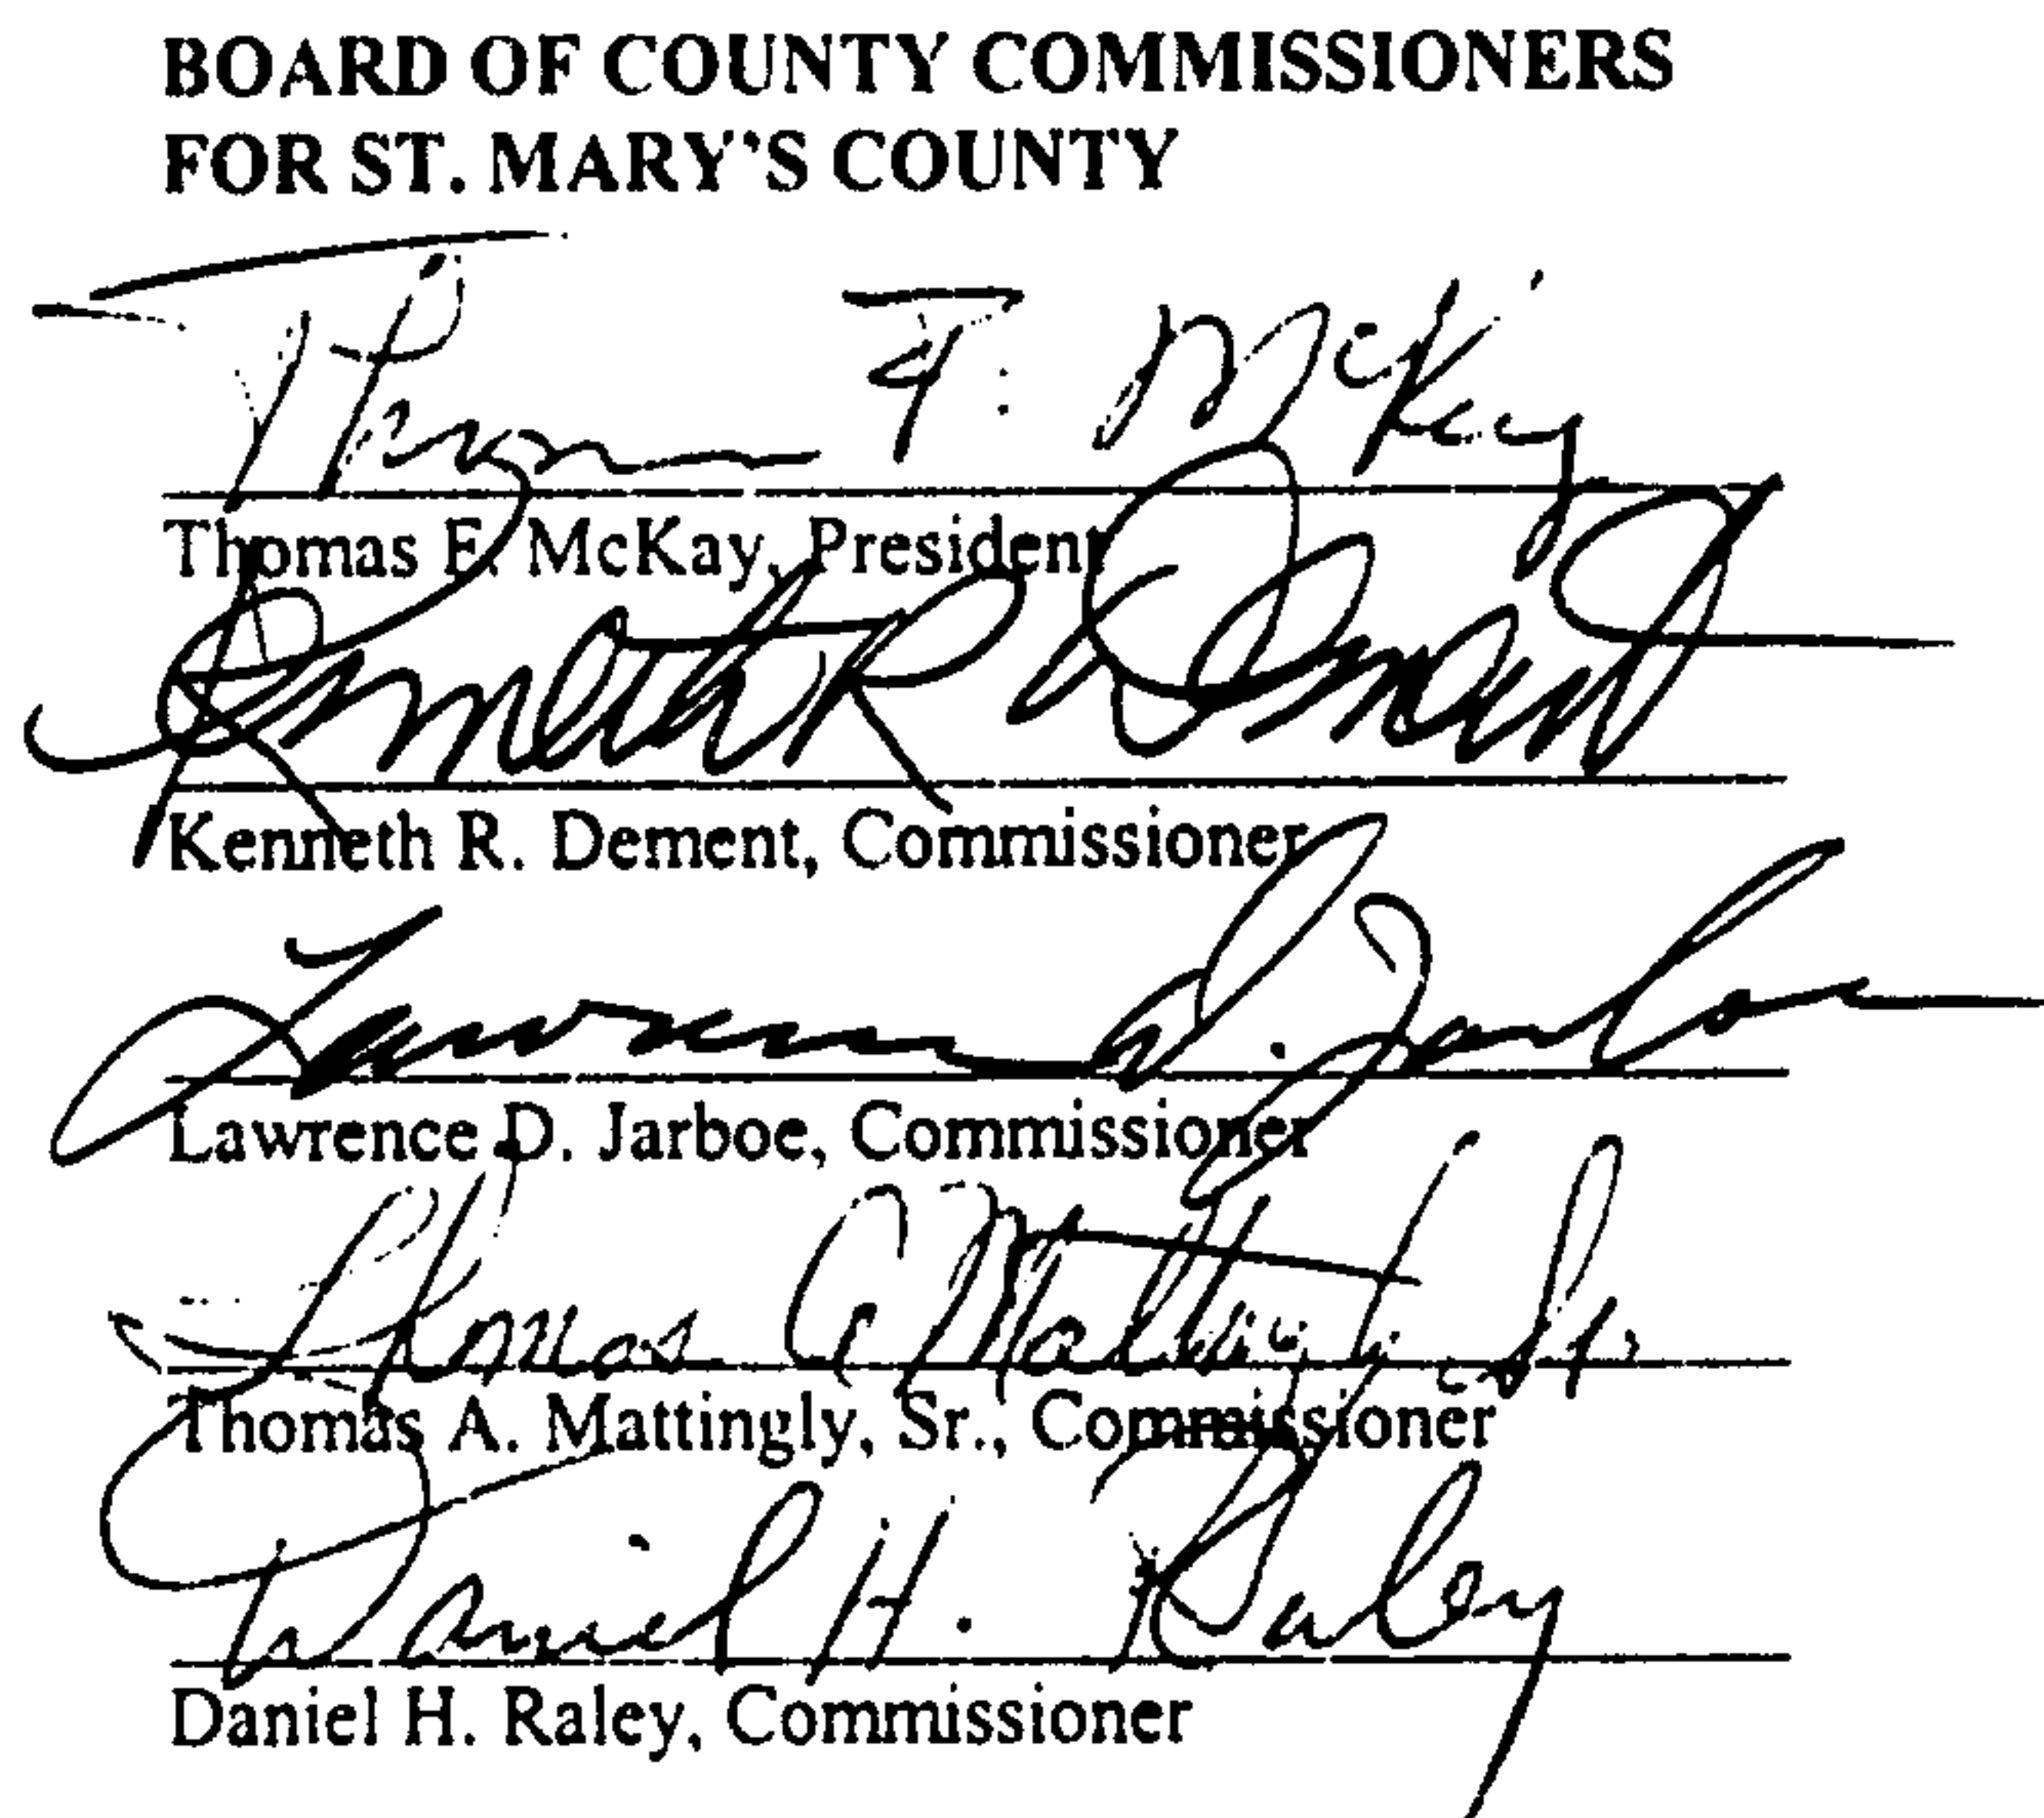 BOARD OF COUNTY COMMISSIONERS
FOR ST. MARY'S COUNTY
Thomas F. McKay
Thomas F. McKay, President
Kenneth R Dement
Kenneth R. Dement, Commissioner
Lawrence D. Jarboe
Lawrence D. Jarboe, Commissioner
Thomas A Mattingly Sr.
Thomas A. Mattingly, Sr., Commissioner
Daniel H. Raley
Daniel H. Raley, Commissioner